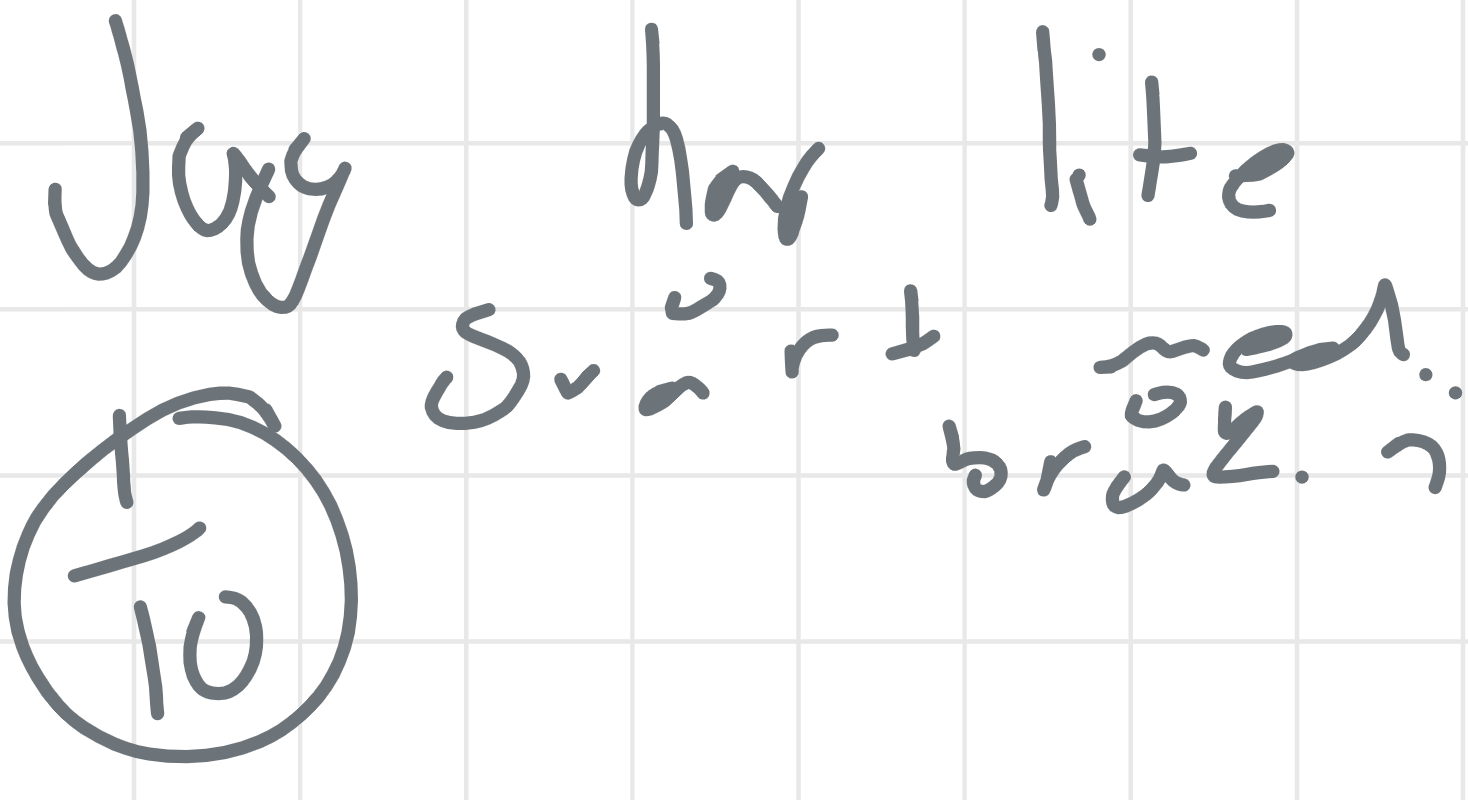 Jag har lite
svårt med
bråk. :(
1
10